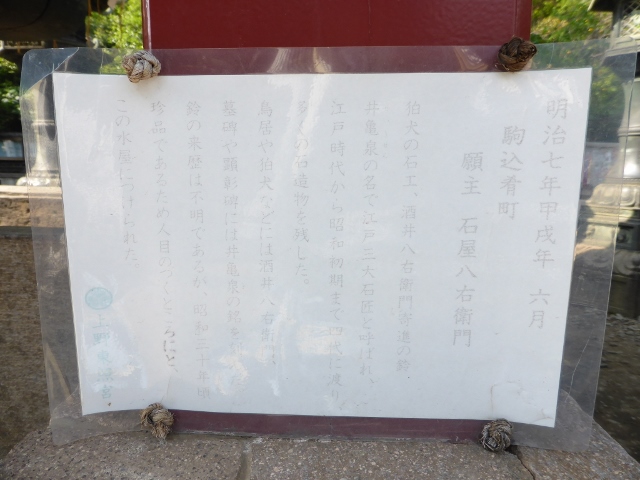 明治七年甲戌年 六月
駒込肴町
願主 石屋八右衛門
狛犬の石工、酒井八右衛門寄進の鈴
井亀泉の名で江戸三大石匠と呼ばれ、
江戸時代から昭和初期まで四代に渡り
の石造物を残した。
鳥居や狛犬などには酒井八右衛門、
墓碑や顕彰碑には井亀泉の銘を
鈴の来歴は不明であるが、昭和三十年頃
珍品であるため人目のつくところにと、
この水屋につけられた。
上野東照宮